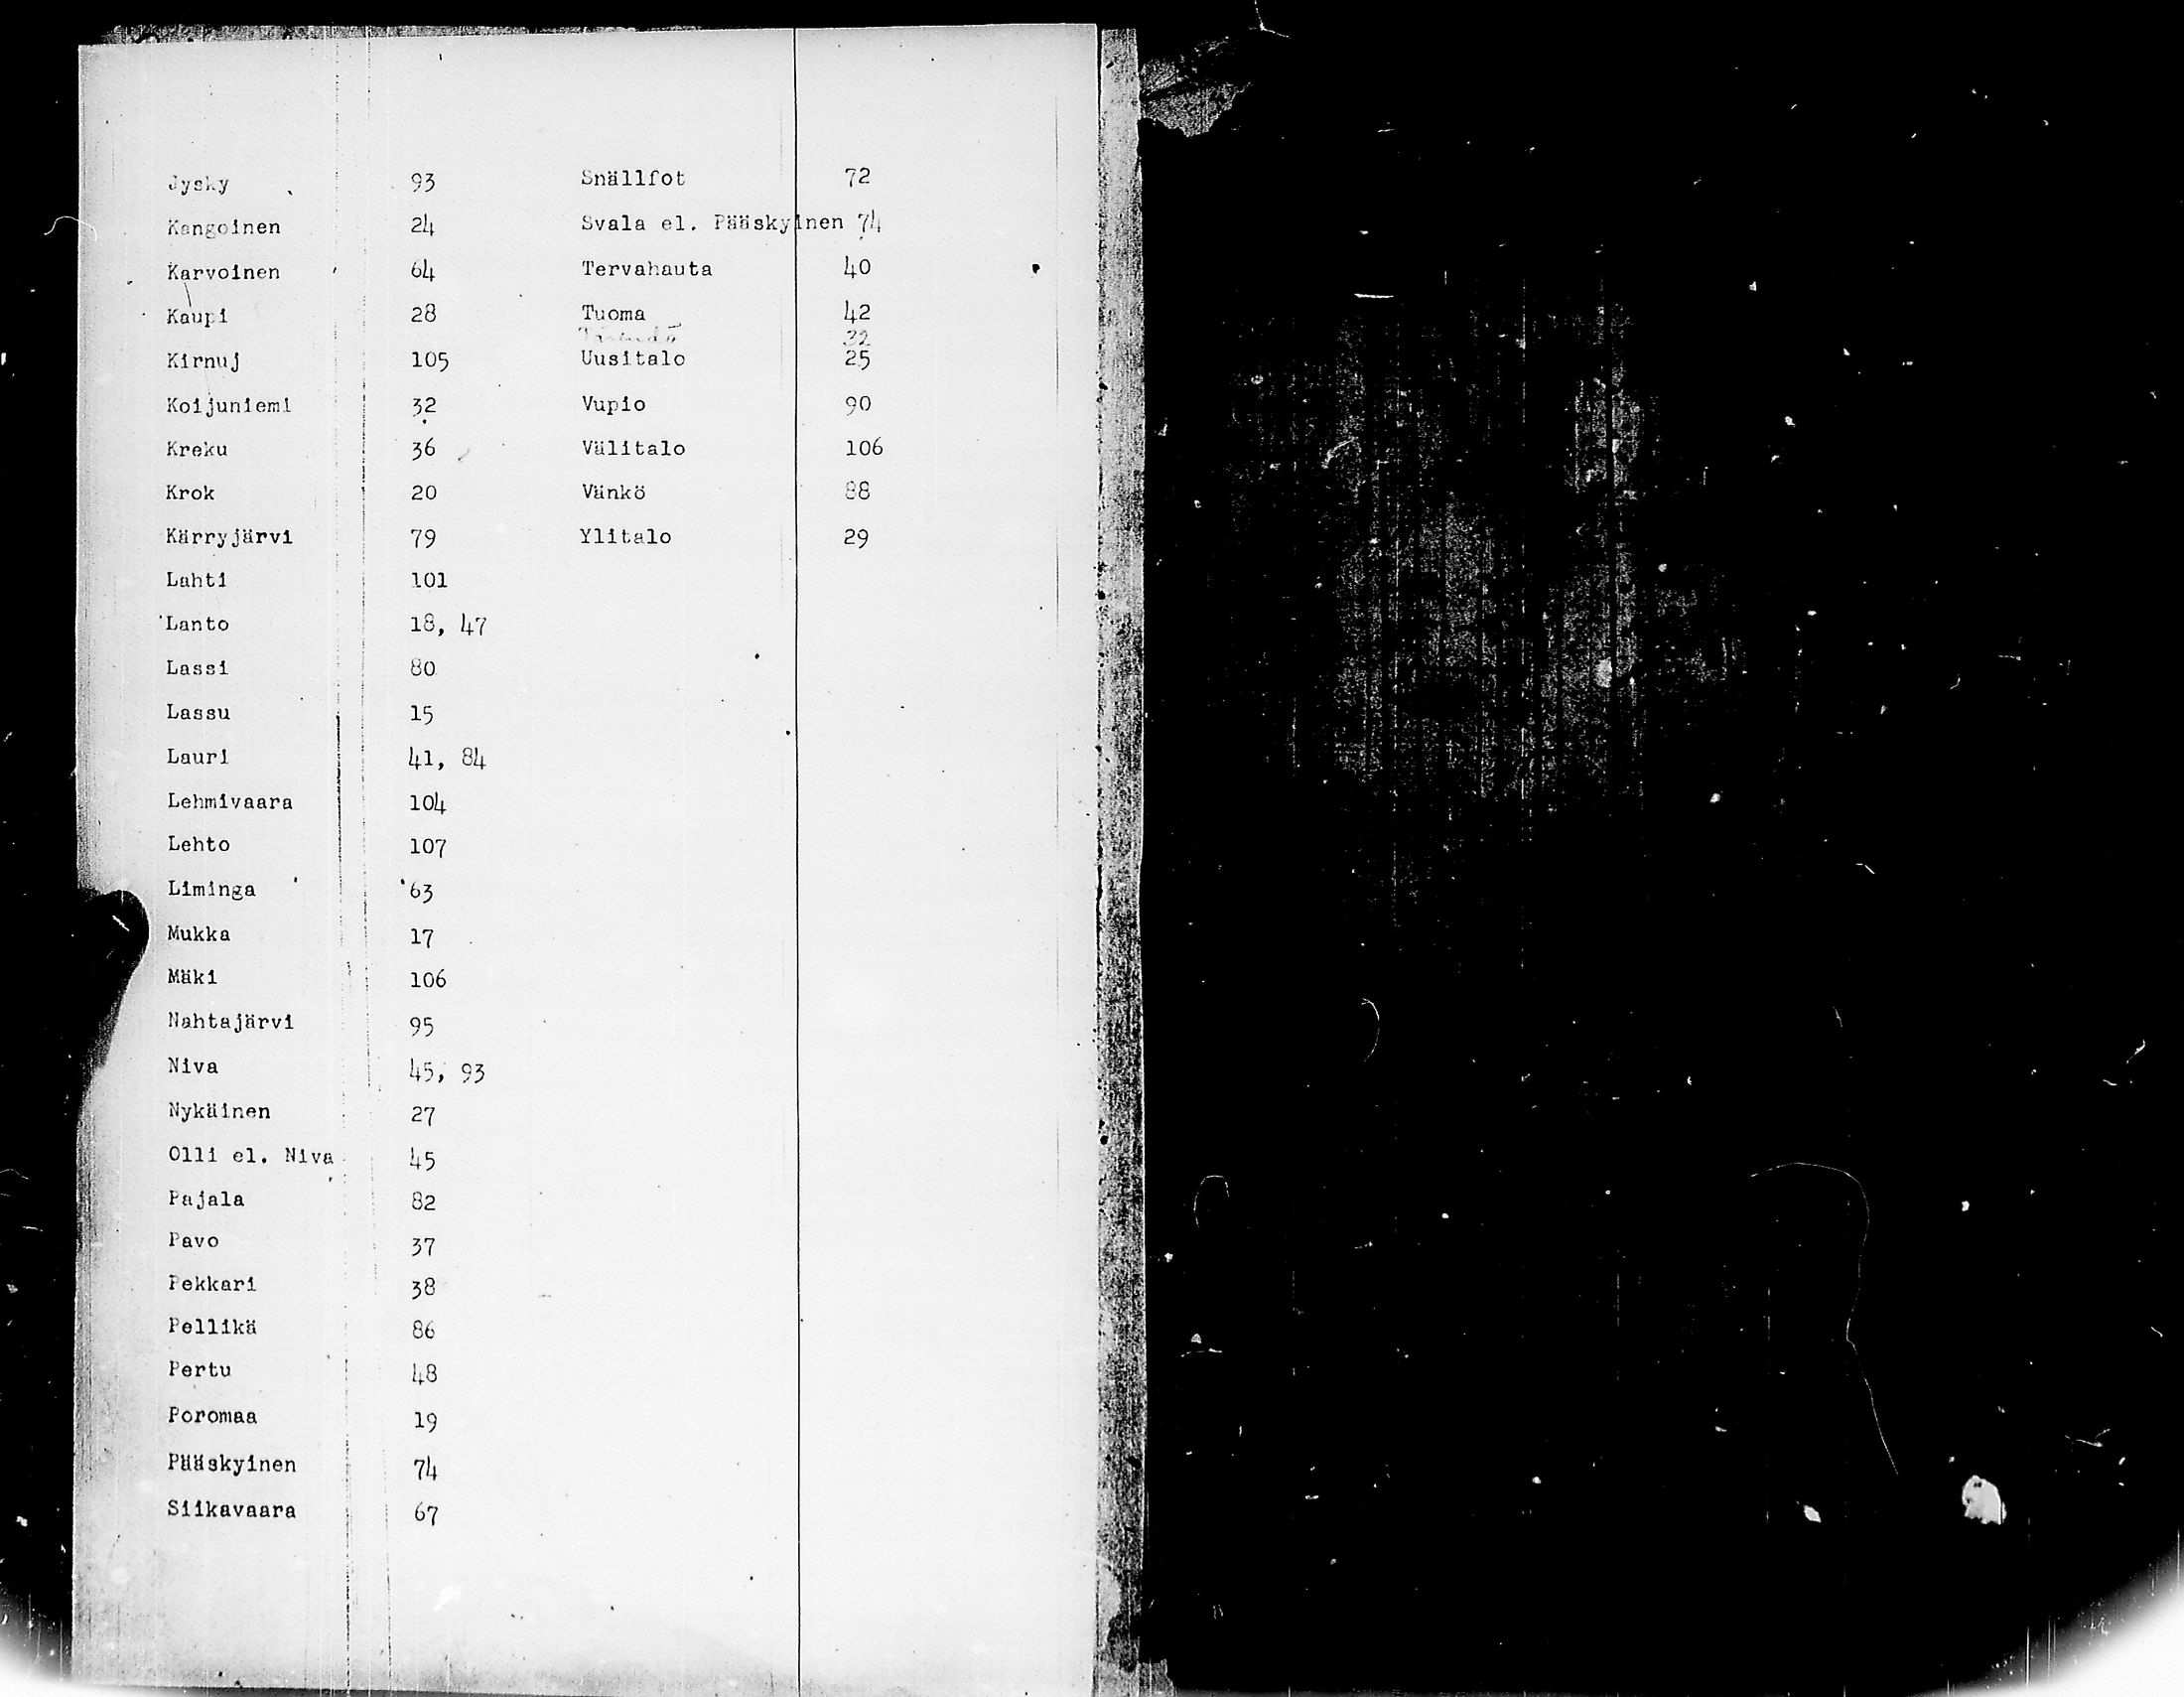 Jysky 93
Kangoinen 24
Karvoinen 64
Kaupi 28
Kirnuj 105
Koijuniemi 32
Kreku 36
Krok 20
Kärryjärvi 79
Lahti 101
Lanto 18, 47
Lassi 80
Lassu 15
Lauri 41, 84
Lehmivaara 104
Lehto 107
Liminga 63
Mukka 17
Mäki 106
Nahtajärvi 95
Niva 45, 93
Nykäinen 27
Olli el. Niva 45
Pajala 82
Pavo 37
Pekkari 38
Pellikä 86
Pertu 48
Poromaa 19
Pääskyinen 74
Siikavaara 67
Snällfot 72
Svala el. Pääskyinen 74
Tervahauta 40
Tuoma 42
32
Uusitalo 25
Vupio 90
Välitalo 106
Vänkö 88
Ylitalo 29